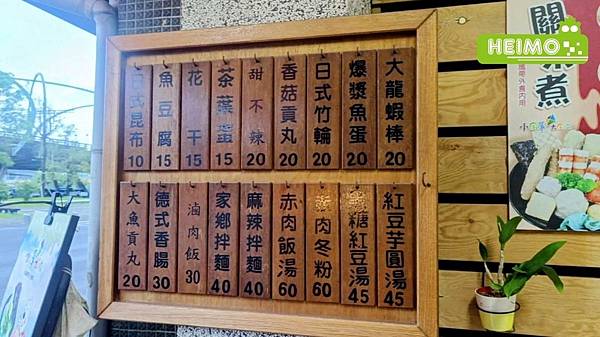 HEIMO
大龍蝦棒 20
爆漿魚蛋 20
日式竹輪 20
香菇貢丸 20
甜不辣 20
茶葉蛋 15
花干 15
魚豆腐 15
日式昆布 10
紅豆芋圓湯 45
糖紅豆湯 45
肉冬粉 60
赤肉飯湯 60
麻辣拌麵 40
家鄉拌麵 40
滷肉飯 30
德式香腸 30
大魚貢丸 20
關 煮